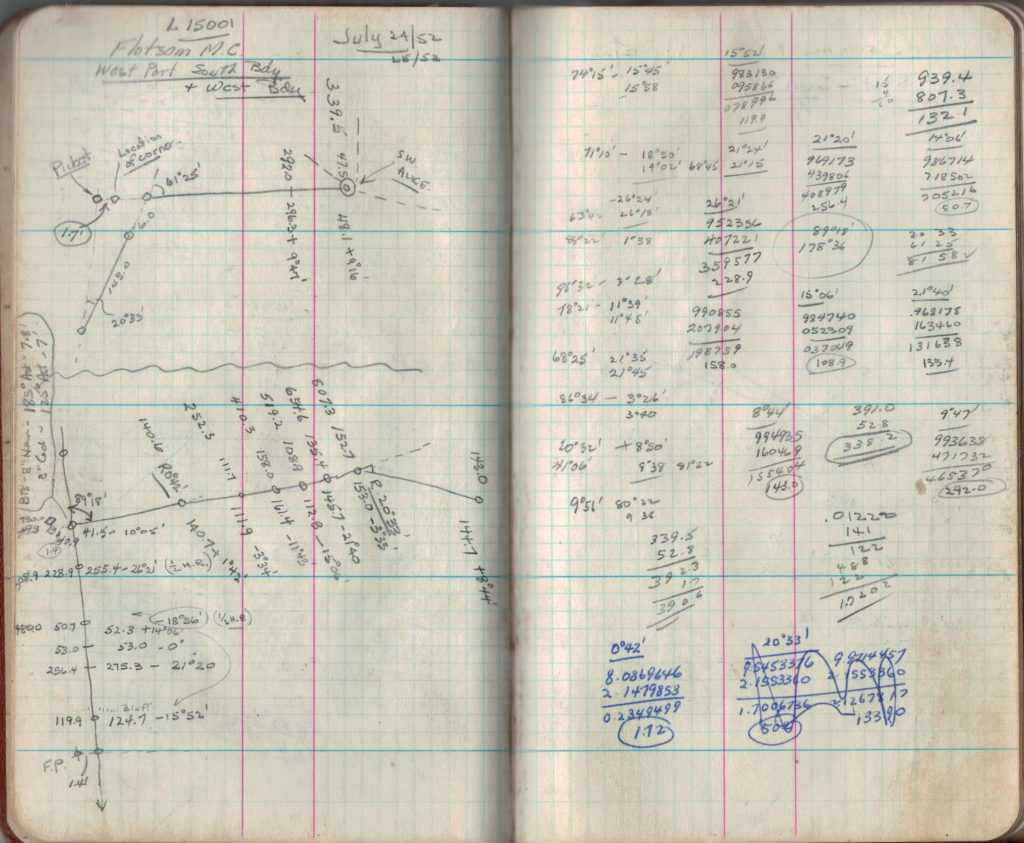 L 15001
Flotsam M.C.
West Part South Bdy
+ West Bdy
July 24/52
25/52
339.5
Picket
Location
of corner
61°25'
292.0 - 296.3 + 9°47'
47.5
48.1 + 9°16'
SW
1.7'
6.0
145.0
20°33'
140.6
252.3
410.3
519.2
654.6
507.3
R 0°42'
111.7
158.0
108.9
135.4
152.7
143.0
89°18'
41.5 - 10°05'
40.9
140.7 + 1°42'
111.9 - 3°34'
161.4 - 11°43'
112.8 - 15°06'
145.7 - 21°40
153.0 - 3°33'
R. 20°33'
144.7 + 8°44'
228.9
255.4 - 26°21' (½ H.R.)
-18°56' (½ H.R)
480.0
50.7
52.3 + 14°06'
53.0
53.0 - 0°
256.4
275.3 - 21°20
Bluff
119.9
124.7 - 15°52'
F.P.
1.4'
74°15' - 15°45'
15°58
15°52'
983130
095866
078996
119.9
939.4
807.3
132.1
71°10' - 18°50'
19°02' 68°45
21°24'
21°15
21°20'
969173
439806
408979
256.4
14°06'
986714
718502
705216
50.7
-26°24'
63°42 26°18'
88°22' 1°38
26°21'
952356
407221
359577
228.9
89°18'
178°36
20 33
61 25
81 58
86°32 - 3°28'
78°21' - 11°39'
11°48'
990855
207904
198759
158.0
15°06'
984740
052309
037049
108.9
21°40'
.968178
163460
131638
135.4
68°25' 21°35
21°45
86°34 - 3°26'
3°40
8°44'
994935
160469
155404
143.0
391.0
52.8
338.2
9°47'
993638
471732
465370
292.0
20°32' + 8°50'
41°06' 9°38 81°22
9°51' 80°22
9 38
339.5
52.8
392.3
1.7
390.6
.01220
141
122
488
122
1.7202
0°42'
8.0869646
2.1479853
0.2349499
1.72
20°33'
9.5453376
2.1553360
1.7006736
9.9714457
2.1553360
2.1267817
133.90